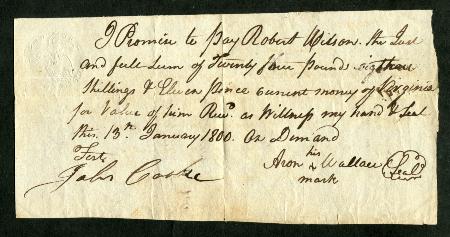 I Promise to Pay Robert Wilson the Just
and full Sum of Twenty four Pounds
Shillings & Eleven Pence current money of Virginia
for Value of him Recd. as Willness my hand & Seal
this 13th January 1800. On Demand
Test
his
Aron x Wallace Seal
mark
John